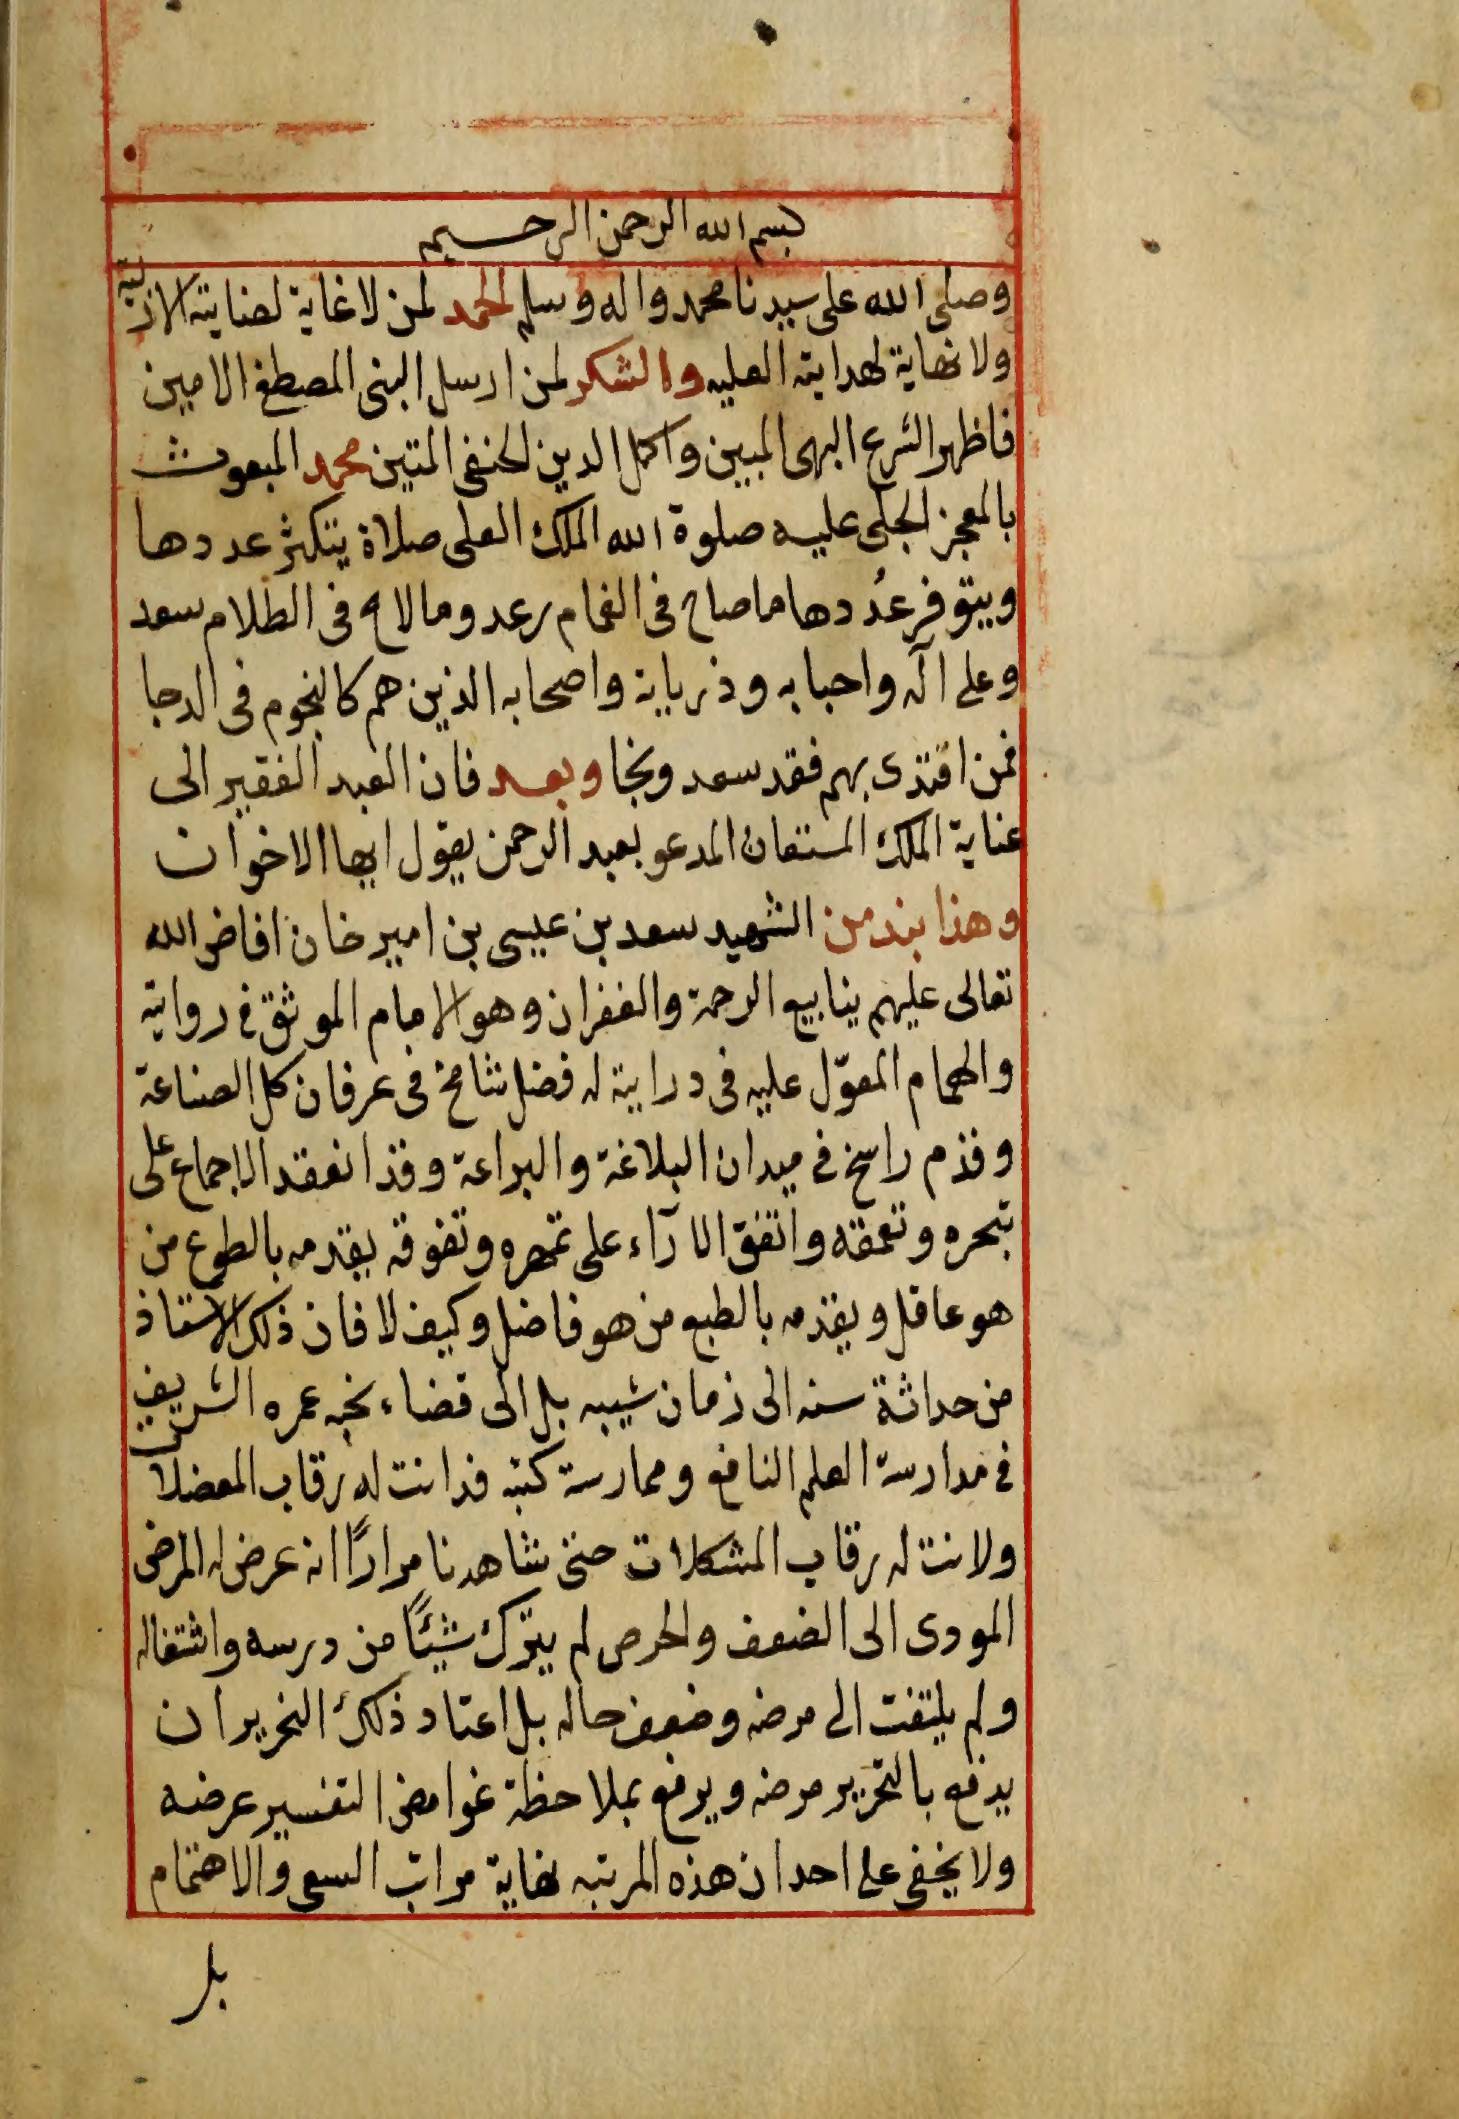 بسم الله الرحمن الرحيم
وصلى الله على سيدنا محمد واله وسلم الحمد لمن لا غاية لعنايته الازلية
ولا نهاية لهدايته العليه والشكر لمن ارسل النبى المصطفى الامين
فاظهر الشرع البهى المبين واكمل الدين الحنفى المتين محمد المبعوث
بالمعجز الجلى عليه صلوة الله الملك العلى صلاة يتكثر عددها
ويتوفر عُددها ما صاح فى الغمام رعد وما لاح فى الظلام سعد
وعلى آله واحبابه وذرياته واصحابه الذين هم كالنجوم فى الدجا
فمن اقتدى بهم فقد سعد ونجا وبعد فان العبد الفقير الى
عناية الملك المستعان المدعو بعبد الرحمن يقول ايها الاخوان
وهذا بند من الشهيد سعد بن عيسى بن امير خان افاض الله
تعالى عليهم ينابيع الرحمة والغفران وهو الامام الموثق فى روايته
والهمام المعوّل عليه فى درايته له فضل شامخ فى عرفان كل الصناعة
وقدم راسخ فى ميدان البلاغة والبراعة وقد انعقد الاجماع على
تبحره وتعمقه واتفق الاآراء على تمهره وتفوقه يقدمه بالطوع من
هو عاقل ويقدمه بالطبع من هو فاضل وكيف لا فان ذلك الاستاذ
من حداثة سنه الى زمان شيبه بل الى قضاء نحبه عمره الشريف
فى مدارسة العلم النافع وممارسة كتبه فدانت له رقاب المعضلات
ولانت له رقاب المشكلات حتى شاهدنا مرارًا انه عرض له المرض
المودى الى الضعف والحرص لم يترك شيئًا من درسه واشتغاله
ولم يلتفت الى مرضه وضعف حاله بل اعتاد ذلك النحرير ان
يدفع بالتحرير مرضه ويرفع بملاحظة غوامض التفسير عرضه
ولا يخفى على احد ان هذه المرتبه نهاية مراتب السعى والاهتمام
بل